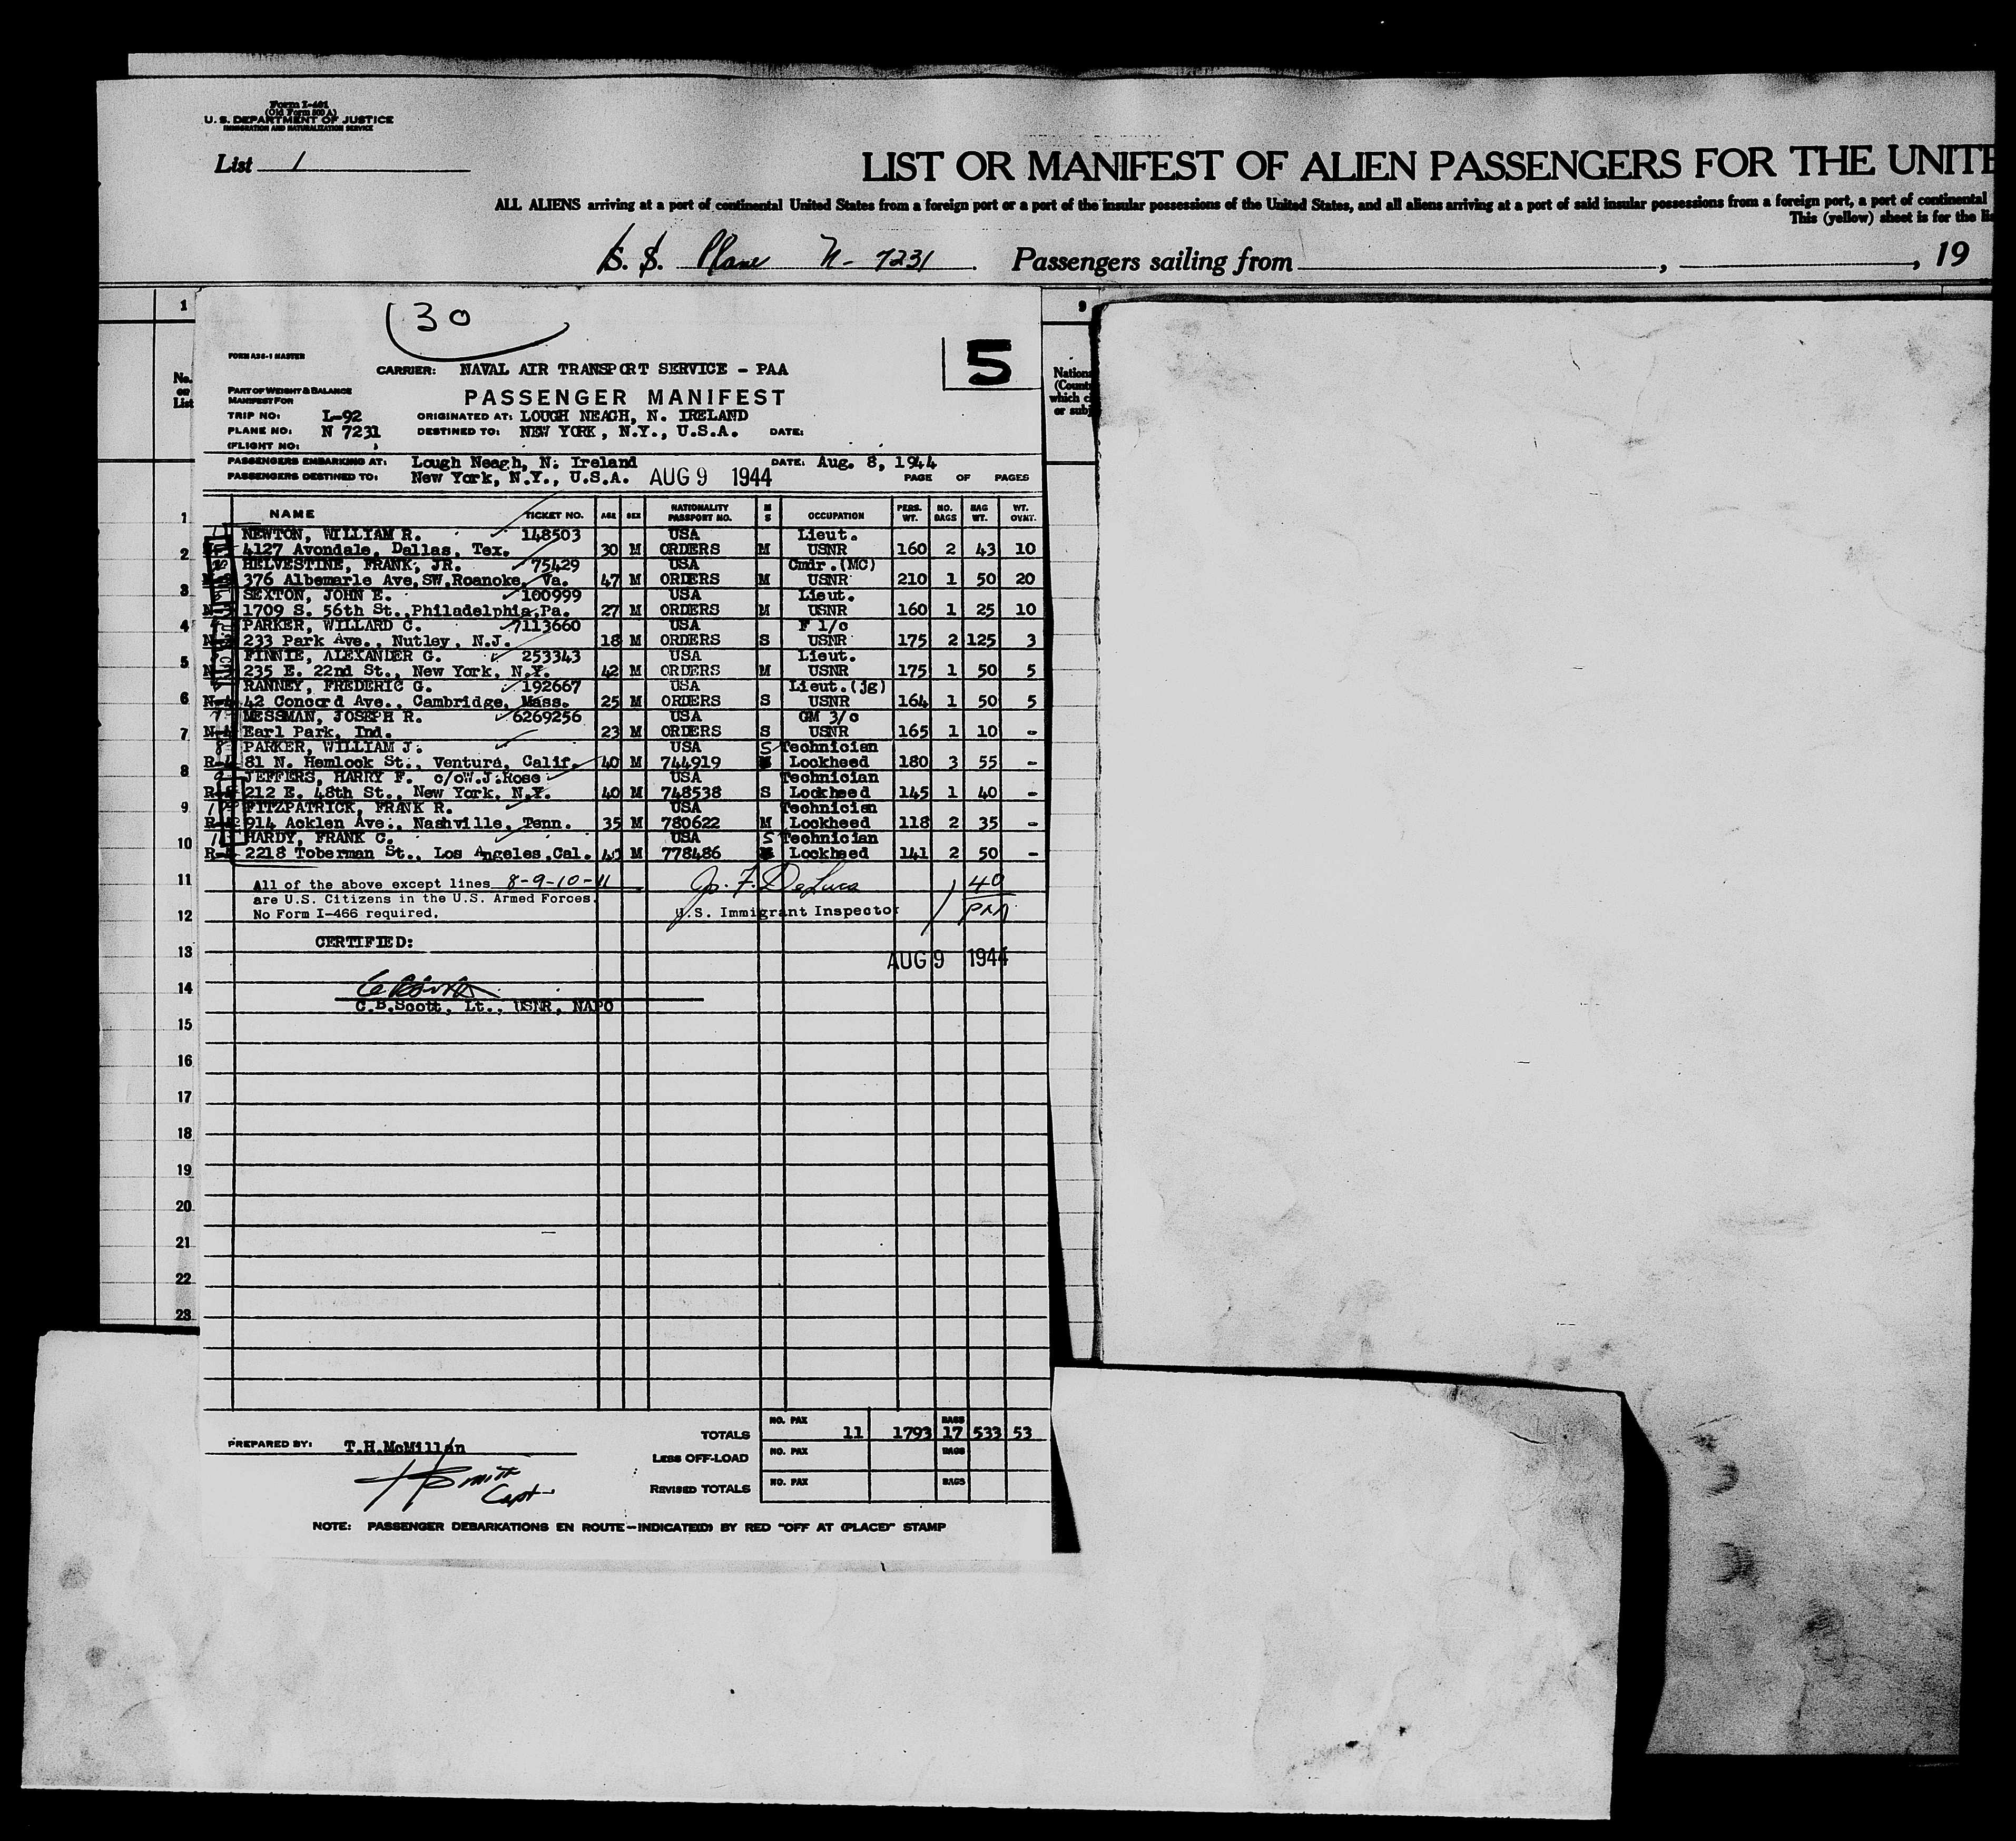 Form I-401
(Old Form 500 A)
U. S. DEPARTMENT OF JUSTICE
IMMIGRATION AND NATURALIZATION SERVICE
List 1
LIST OR MANIFEST OF ALIEN PASSENGERS FOR THE UNITE
ALL ALIENS arriving at a port of continental United States from a foreign port or a part of the insular possessions of the United States, and all aliens arriving at a port of said insular possessions from a foreign port, a port of continental
This (yellow) sheet is for the lis
S. S. Plane N- 7231 . Passengers sailing from , , 19
1 9
No. on List
Nationa (Count which ci or subj
30
5
FORM A36-1 MASTER
CARRIER: NAVAL AIR TRANSPORT SERVICE - PAA
PART OF WEIGHT & BALANCE
MANIFEST FOR PASSENGER MANIFEST
TRIP NO: L-92 ORIGINATED AT: LOUGH NEAGH, N. IRELAND
PLANE NO: N 7231 DESTINED TO: NEW YORK, N.Y., U.S.A. DATE:
(FLIGHT NO: )
PASSENGERS EMBARKING AT: Lough Neagh, N. Ireland DATE: Aug. 8, 1944
PASSENGERS DESTINED TO: New York, N.Y., U.S.A. AUG 9 1944 PAGE OF PAGES
NAME TICKET NO. AGE SEX NATIONALITY PASSPORT NO. M S OCCUPATION PERS. WT. NO. BAGS BAG WT. WT. OVWT.
1 NEWTON, WILLIAM R. 148503 USA Lieut.
2 4127 Avondale, Dallas, Tex. 30 M ORDERS M USNR 160 2 43 10
HELVESTINE, FRANK, JR. 75429 USA Cmdr.(MC)
376 Albemarle Ave,SW,Roanoke, Va. 47 M ORDERS M USNR 210 1 50 20
3 SEXTON, JOHN E. 100999 USA Lieut.
1709 S. 56th St.,Philadelphia,Pa. 27 M ORDERS M USNR 160 1 25 10
4 PARKER, WILLARD C. 7113660 USA F 1/c
233 Park Ave., Nutley, N.J. 18 M ORDERS S USNR 175 2 125 3
5 FINNIE, ALEXANDER G. 253343 USA Lieut.
235 E. 22nd St., New York, N.Y. 42 M ORDERS M USNR 175 1 50 5
RANNEY, FREDERIC G. 192667 USA Lieut.(jg)
6 42 Concord Ave., Cambridge, Mass. 25 M ORDERS S USNR 164 1 50 5
MESSMAN, JOSEPH R. 6269256 USA GM 3/c
7 Earl Park, Ind. 23 M ORDERS S USNR 165 1 10 -
PARKER, WILLIAM J. USA S Technician
R-A 81 N. Hemlock St., Ventura, Calif. 40 M 744919 Lockheed 180 3 55 -
8 JEFFERS, HARRY F. c/oW.J.Rose USA Technician
212 E. 48th St., New York, N.Y. 40 M 748538 S Lockheed 145 1 40 -
9 FITZPATRICK, FRANK R. USA Technician
914 Acklen Ave., Nashville, Tenn. 35 M 780622 M Lockheed 118 2 35 -
10 HARDY, FRANK C. USA S Technician
2218 Toberman St., Los Angeles,Cal. M 778486 Lockheed 141 2 50 -
11 All of the above except lines 8-9-10-11 Jo. F. DeLuca 40
are U.S. Citizens in the U.S. Armed Forces.
12 No Form I-466 required. U.S. Immigrant Inspector PAA
CERTIFIED:
13 AUG 9 1944
14
C.B.Scott, Lt., USNR, NAPO
15
16
17
18
19
20
21
22
23
TOTALS NO. PAX 11 1793 BAGS 17 533 53
PREPARED BY: T.H.McMillan
LESS OFF-LOAD NO. PAX BAGS
Smith
Capt.
REVISED TOTALS NO. PAX BAGS
NOTE: PASSENGER DEBARKATIONS EN ROUTE—INDICATE(D) BY RED "OFF AT (PLACE)" STAMP